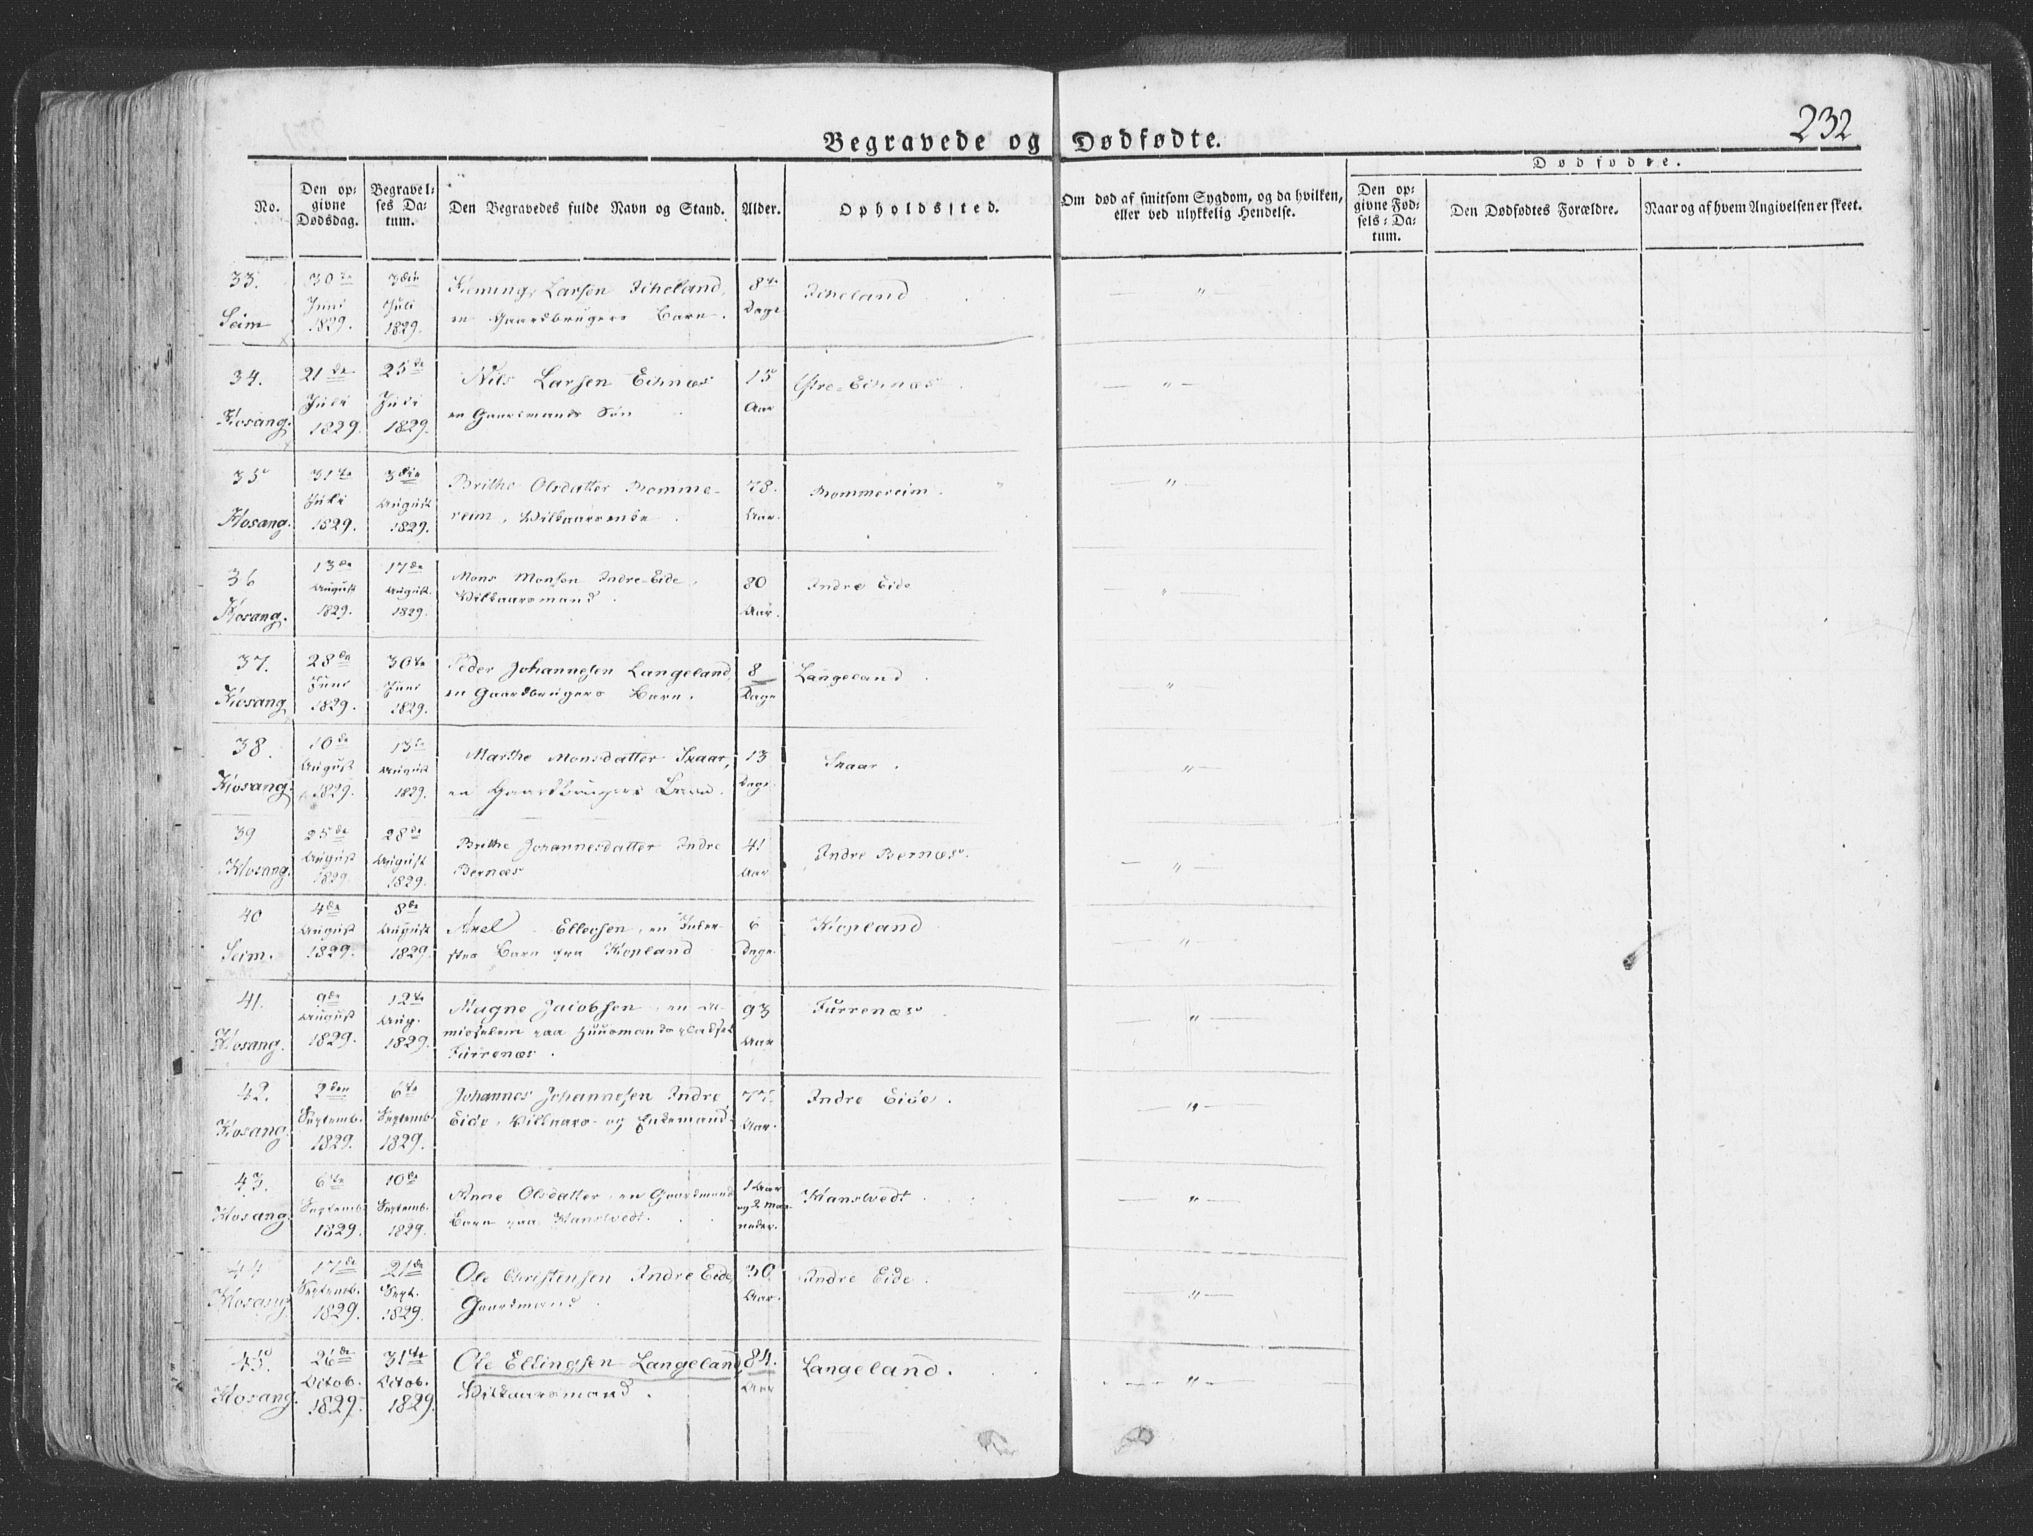 232
Begravede og Dødfødte.
Dødfødte.
No. Den opgivne Dødsdag. Begravelses Datum. Den Begravedes fulde Navn og Stand. Alder. Opholdssted. Om død af smitsom Sygdom, og da hvilken, eller ved ulykkelig Hendelse. Den opgivne Fødsels-Datum. Den Dødfødtes Forældre. Naar og af hvem Angivelsen er skeet.
33. 30te 3die Larsen 8te
Seim Juni Juli en Gaardbrugers Barn. Dage — " —
1829. 1829.
34. 21de 25de Nils Larsen Eitnæs 15 Østre-Eitnæs — " —
Hosang. Juli Juli en Gaardmands Søn Aar
1829. 1829.
35 31te 3die Brithe Olsdatter Romme- 78. Rommereim. — " —
Hosang. Juli August reim, Aar.
1829. 1829.
36 13de 17de Mons Monsen Indre-Eide, 80 Indre Eide — " —
Hosang. August August. Vilkaarsmand. Aar.
1829. 1829.
37. 28de 30te Peder Johannesen Langeland, 8 Langeland. — " —
Hosang Juni Juni en Gaardbrugers Barn. Dage
1829. 1829.
38. 10de 13de Marthe Monsdatter Skaar, 13 Skaar. — " —
Hosang. August August en Gaardbrugers Barn. Dage.
1829. 1829.
39 25de 28de Brithe Johannesdatter Indre 41 Indre Bernæs. — " —
Hosang. August August Bernæs Aar.
1829. 1829.
40 4de 8de Axel Ellevsen, en Inder- 6 Kopland — " —
Seim. August August stes Barn fra Kopland Dage.
1829. 1829.
41. 9de 12te Magne Jacobsen, en Al- 93 Furrenæs — " —
Hosang. August Aug. misselem paa Huusmandspladset Aar
1829. 1829. Furrenæs.
42. 2den 6te Johannes Johannesen Indre 77. Indre Eide. — " —
Hosang. Septemb. Septemb. Eide, Vilkaars- og Enkemand. Aar.
1829. 1829.
43. 6te 10de Anne Olsdatter, en Gaardmands 1 Aar Hanstvedt. — " —
Hosang. Septemb. Septemb. Barn paa Hanstvedt. og 2 Maa-
1829. 1829. neder.
44 17de 21de Ole Christensen Indre Eide, 30 Indre Eide. — " —
Hosang Septemb. Sept. Gaardmand. Aar.
1829. 1829.
45. 26de 31te Ole Ellingsen Langeland, 84. Langeland. — " —
Hosang. Octob. Octob. Vilkaarsmand. Aar
1829. 1829.